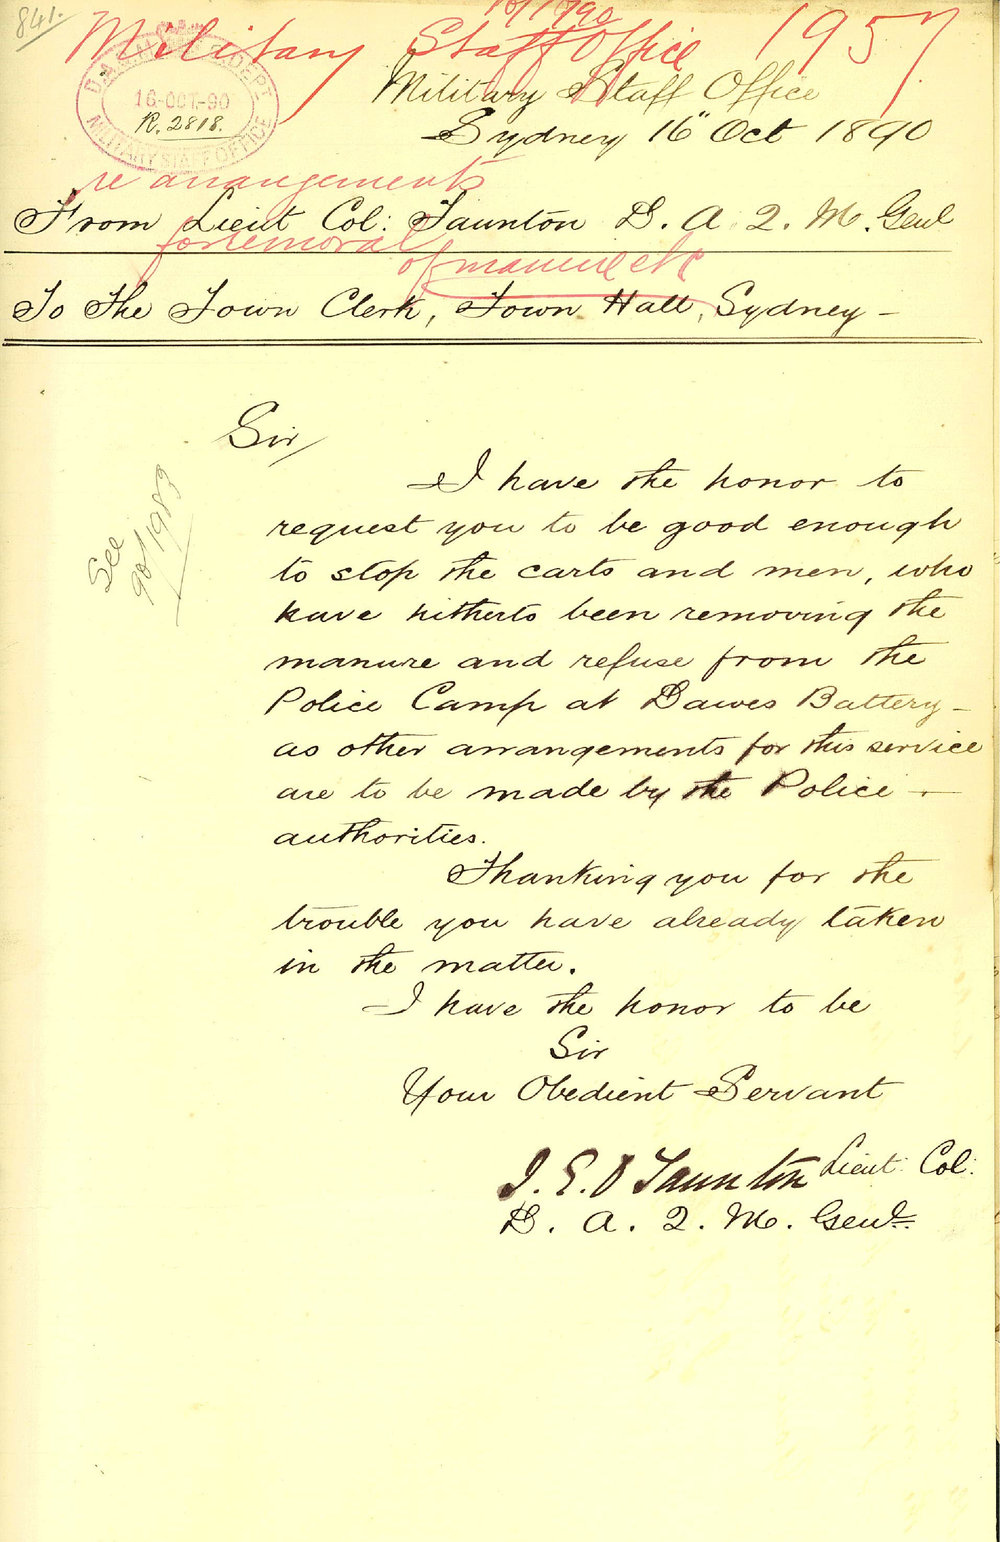 841.
Military Staff Office 1957
Military Staff Office
16-OCT-90
R. 2818.
MILITARY STAFF OFFICE
Sydney 16" Oct 1890
re arrangements
From Lieut Col: Taunton D. A. Q. M. Genl
for removal
of manure etc
To The Town Clerk, Town Hall, Sydney -
Sir/
I have the honor to
request you to be good enough
to stop the carts and men, who
have hitherto been removing the
manure and refuse from the
Police Camp at Dawes Battery -
as other arrangements for this service
are to be made by the Police -
authorities.
Thanking you for the
trouble you have already taken
in the matter.
I have the honor to be
Sir
Your Obedient Servant
Taunton Lieut: Col:
D. A. Q. M. Genl.
See
90/1983